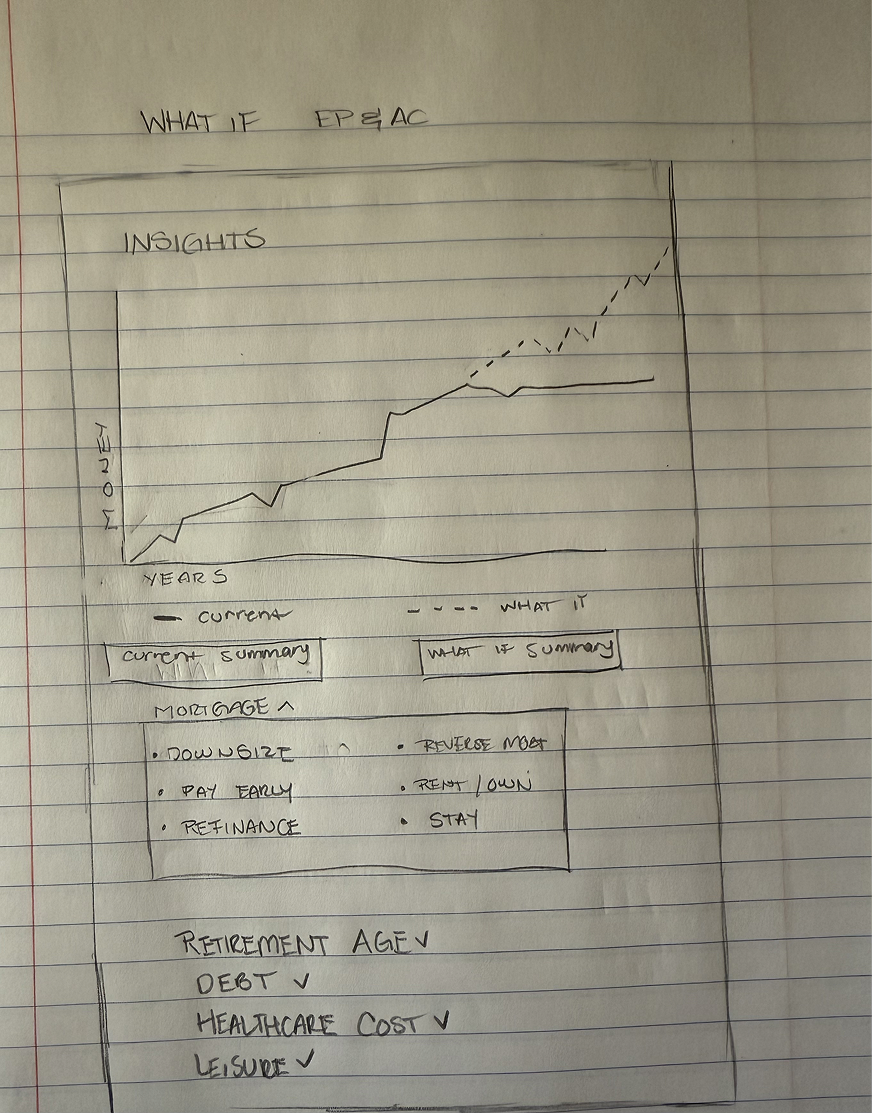 WHAT IF EP & AC
INSIGHTS
MONEY
YEARS
current WHAT IF
current summary WHAT IF summary
MORTGAGE ^
• DOWNSIZE • REVERSE MORT
• PAY EARLY • RENT / OWN
• REFINANCE • STAY
RETIREMENT AGE ✓
DEBT ✓
HEALTHCARE COST ✓
LEISURE ✓